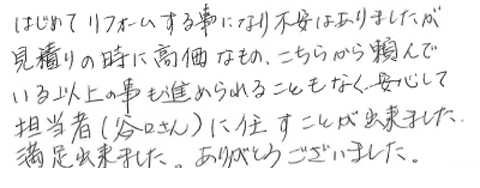 はじめてリフォームする事になり不安はありましたが
見積りの時に高価なもの、こちらから頼んで
いる以上の事も進められることもなく、安心して
担当者(谷口さん)に任すことが出来ました。
満足出来ました。ありがとうございました。